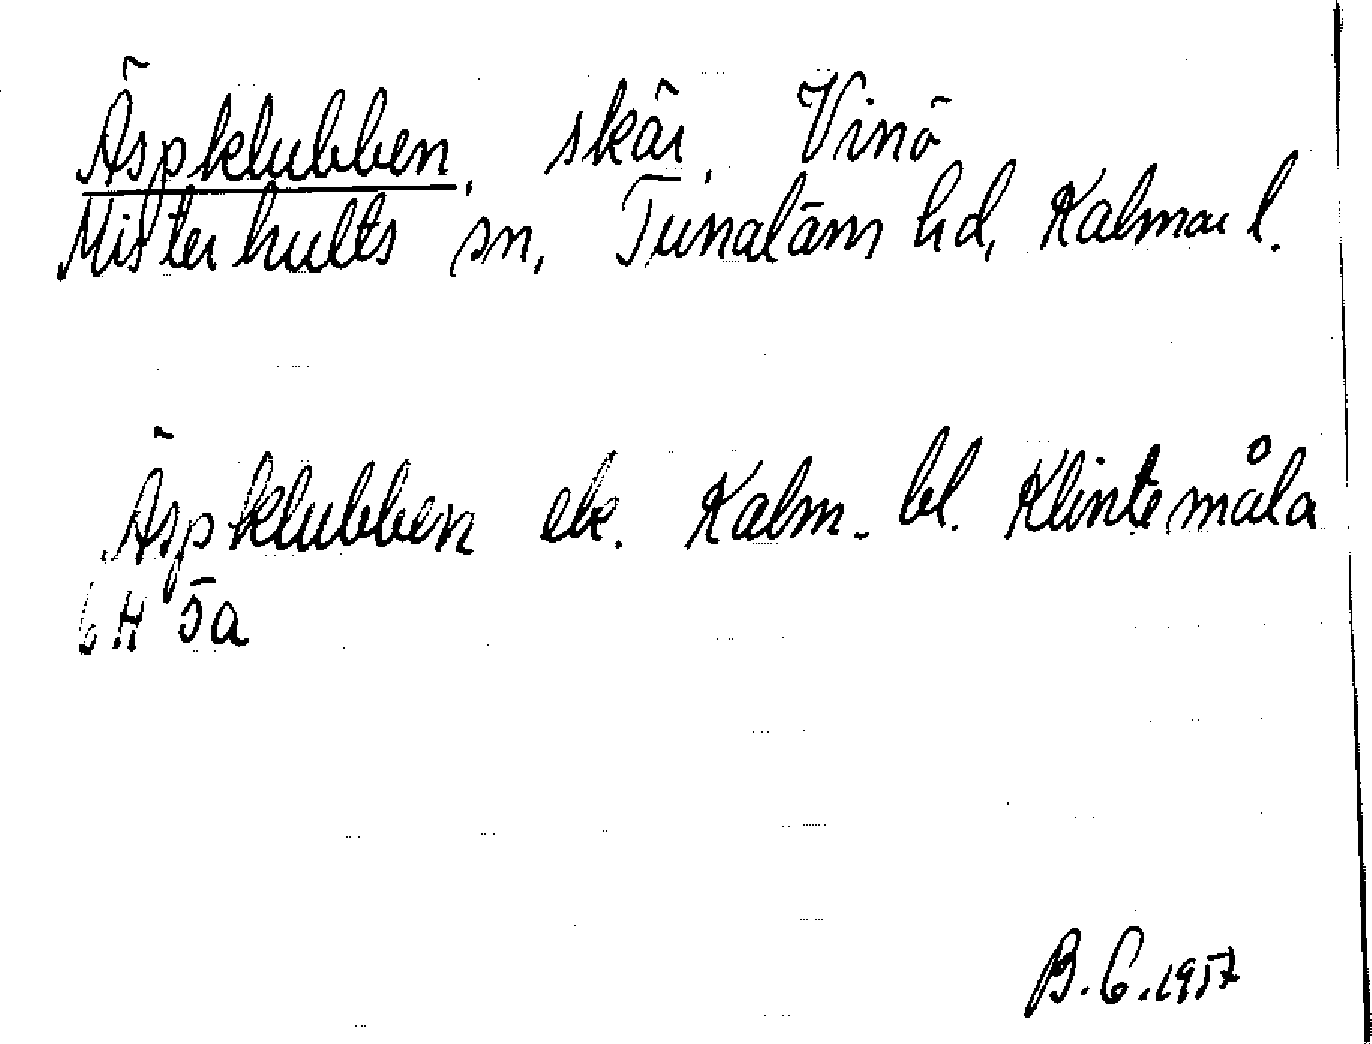 Äspklubben, skär, Vinö
Misterhults sn, Tunaläns hd, Kalmar l.
Äspklubben ek. Kalm. bl. Klintemåla
6H 5a
B.G. 1957